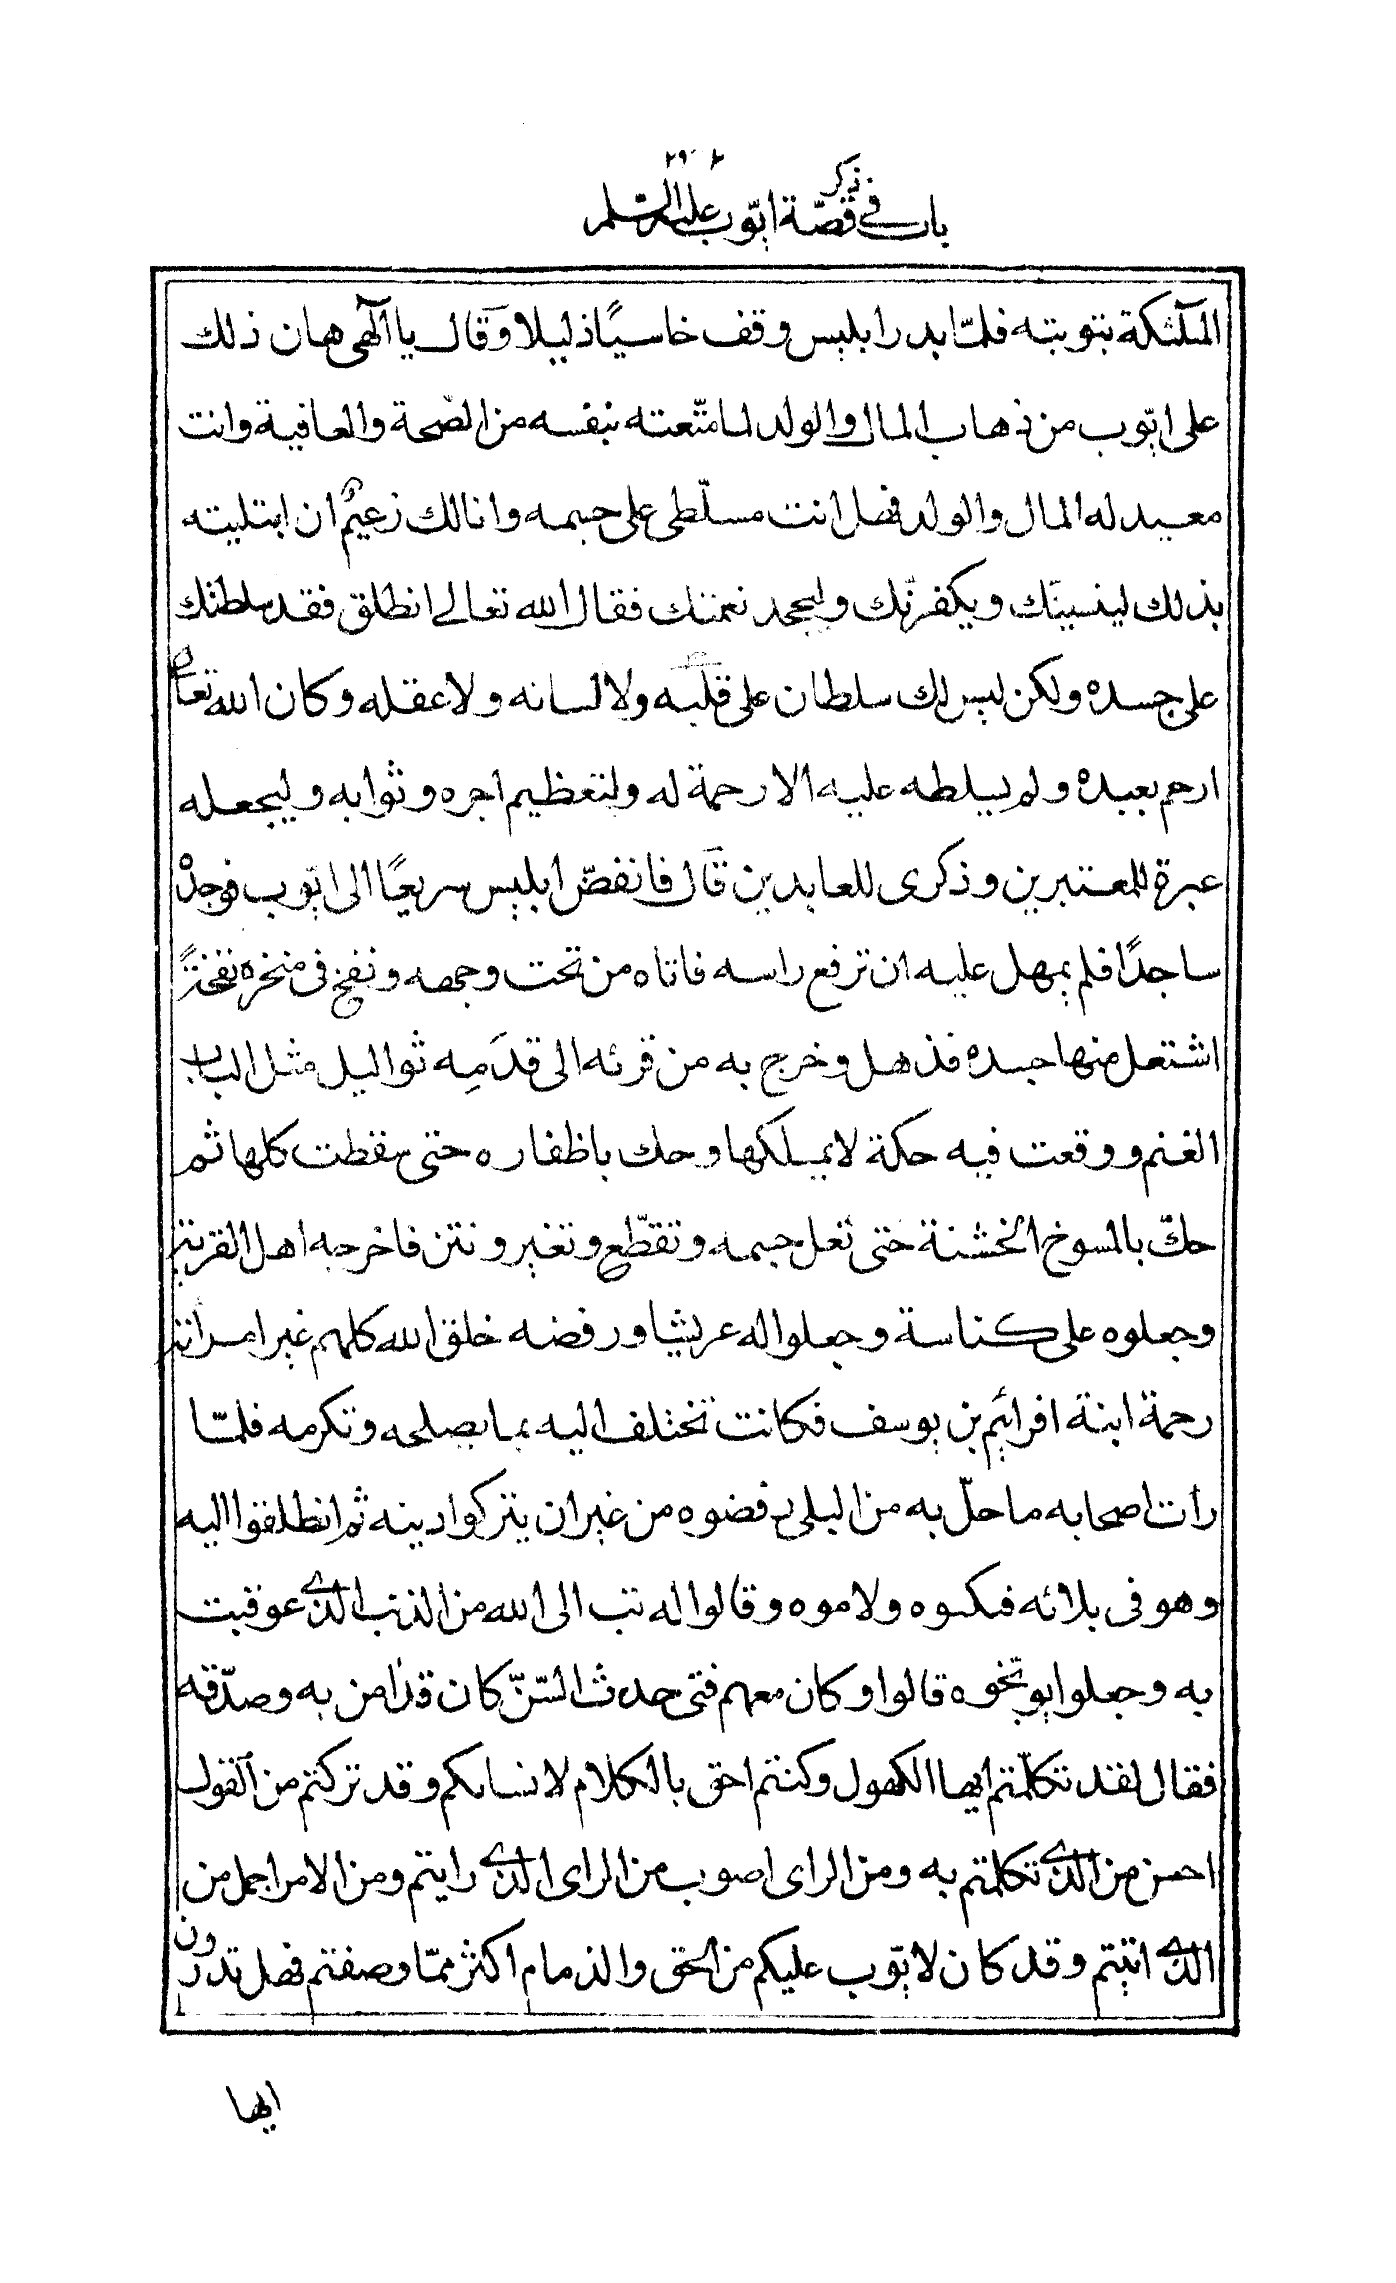 ٢٩٠ ٢
باب في ذكر قصّة ايّوب عليه السّلم
الملٓئكة بتوبته فلمّا بدر ابليس وقف خاسيًا ذليلا وقال يا آلهي هان ذلك
على ايّوب من ذهاب المال والولد لما متّعته بنفسه من الصّحة والعافية وانت
معيد له المال والولد فهل انت مسلّطى على جسمه وانا لك زعيمٌ ان ابتليته
بذلك لينسينّك ويكفرنّك وليجحد نعمتك فقال الله تعالى انطلق فقد سلطتك
على جسده ولكن ليس لك سلطان على قلبه ولا لسانه ولا عقله وكان الله تعالى
ارحم بعبده ولم يسلطه عليه الا رحمة له ولتعظيم اجره وثوابه وليجعله
عبرة للمعتبرين وذكرى للعابدين قال فانقضّ ابليس سريعًا الى ايّوب فوجده
ساجدًا فلم يمهل عليه ان ترفع راسه فاتاه من تحت وجهه ونفخ في منخره نفخةً
اشتعل منها جسده فذهل وخرج به من قرنه الى قدَمِه ثواليل مثل الباب
الغنم ووقعت فيه حكة لا يملكها وحك باظفاره حتى سقطت كلها ثم
حكّ بالمسوخ الخشنة حتى نغل جسمه وتقطّع وتغير ونتن فاخرجه اهل القرية
وجعلوه على كناسة وجعلوا له عريشا ورفضه خلق الله كلهم غير امرأته
رحمة ابنة افرائيم بن يوسف فكانت تختلف اليه بما يصلحه وتكرمه فلمّا
رأت اصحابه ما حلّ به من البلى رفضوه من غير ان يتركوا دينه ثم انطلقوا اليه
وهو فى بلائه فبكوه ولاموه وقالوا له تب الى الله من الذنب الذي عوقبت
به وجعلوا يوبّخوه قالوا وكان معهم فتى حدث السّنّ كان قد اٰمن به وصدّقه
فقال لقد تكلّمتم ايها الكهول وكنتم احق بالكلام لانسابكم وقد تركتم من القول
احسن من الذي تكلمتم به ومن الراى اصوب من الراى الذي رايتم ومن الامر اجمل من
الذي اتيتم وقد كان لايّوب عليكم من الحق والذمام اكثر ممّا وصفتم فهل تدرون
ايها